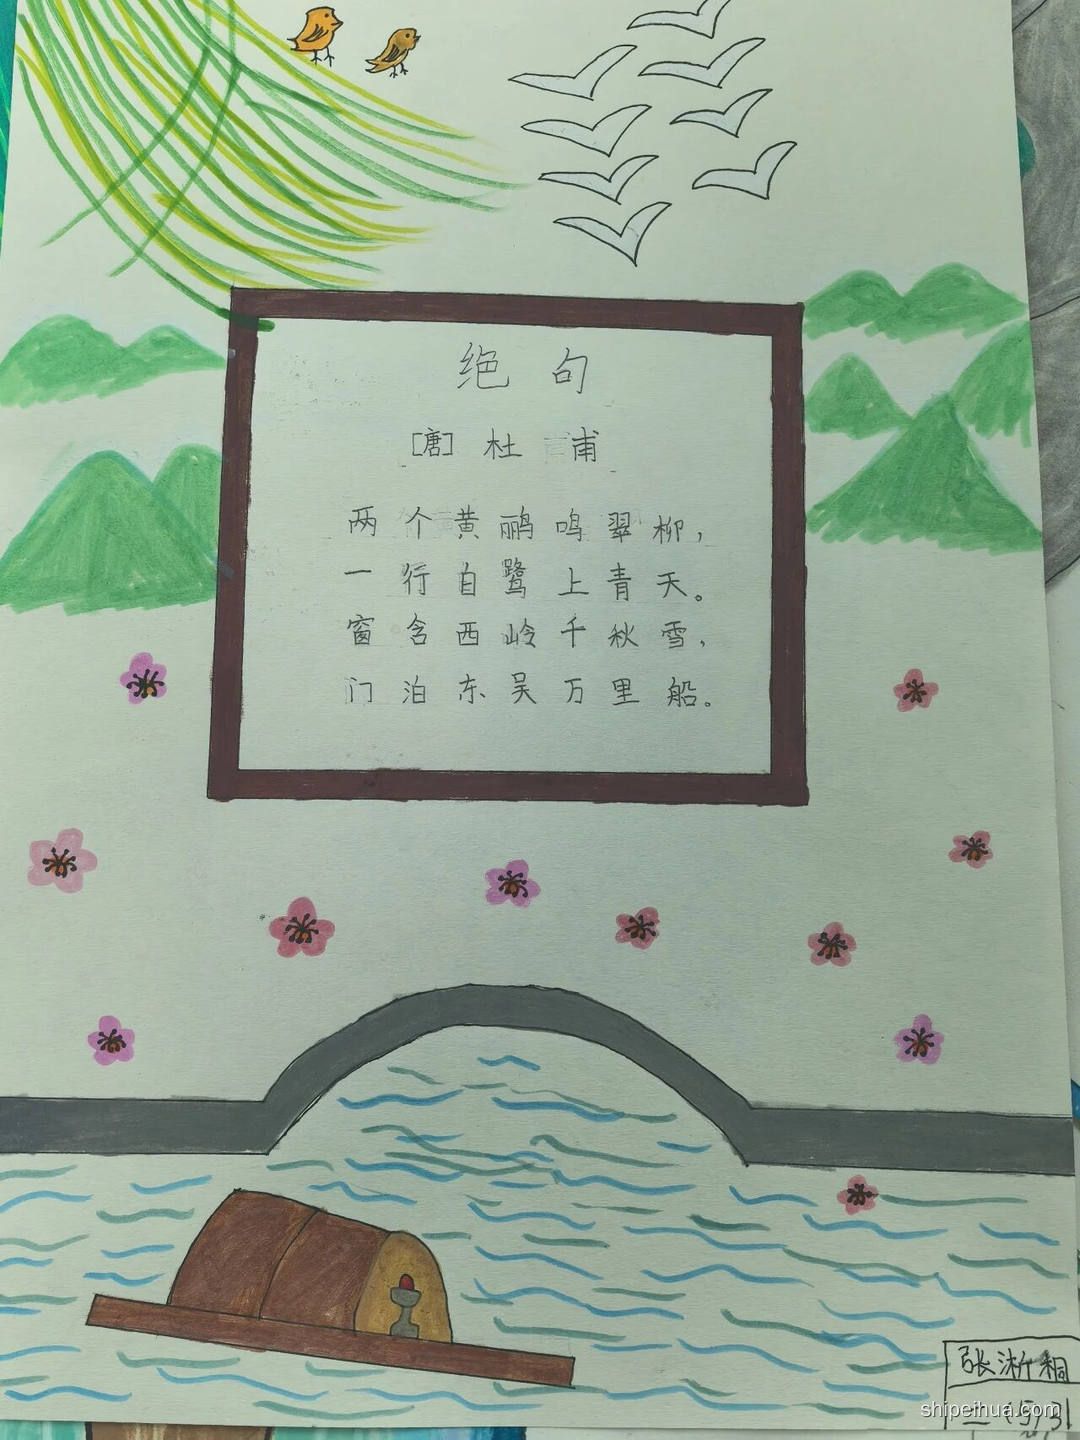 绝句
[唐] 杜甫
两个黄鹂鸣翠柳,
一行白鹭上青天。
窗含西岭千秋雪,
门泊东吴万里船。
张淅桐
shipeihua.com